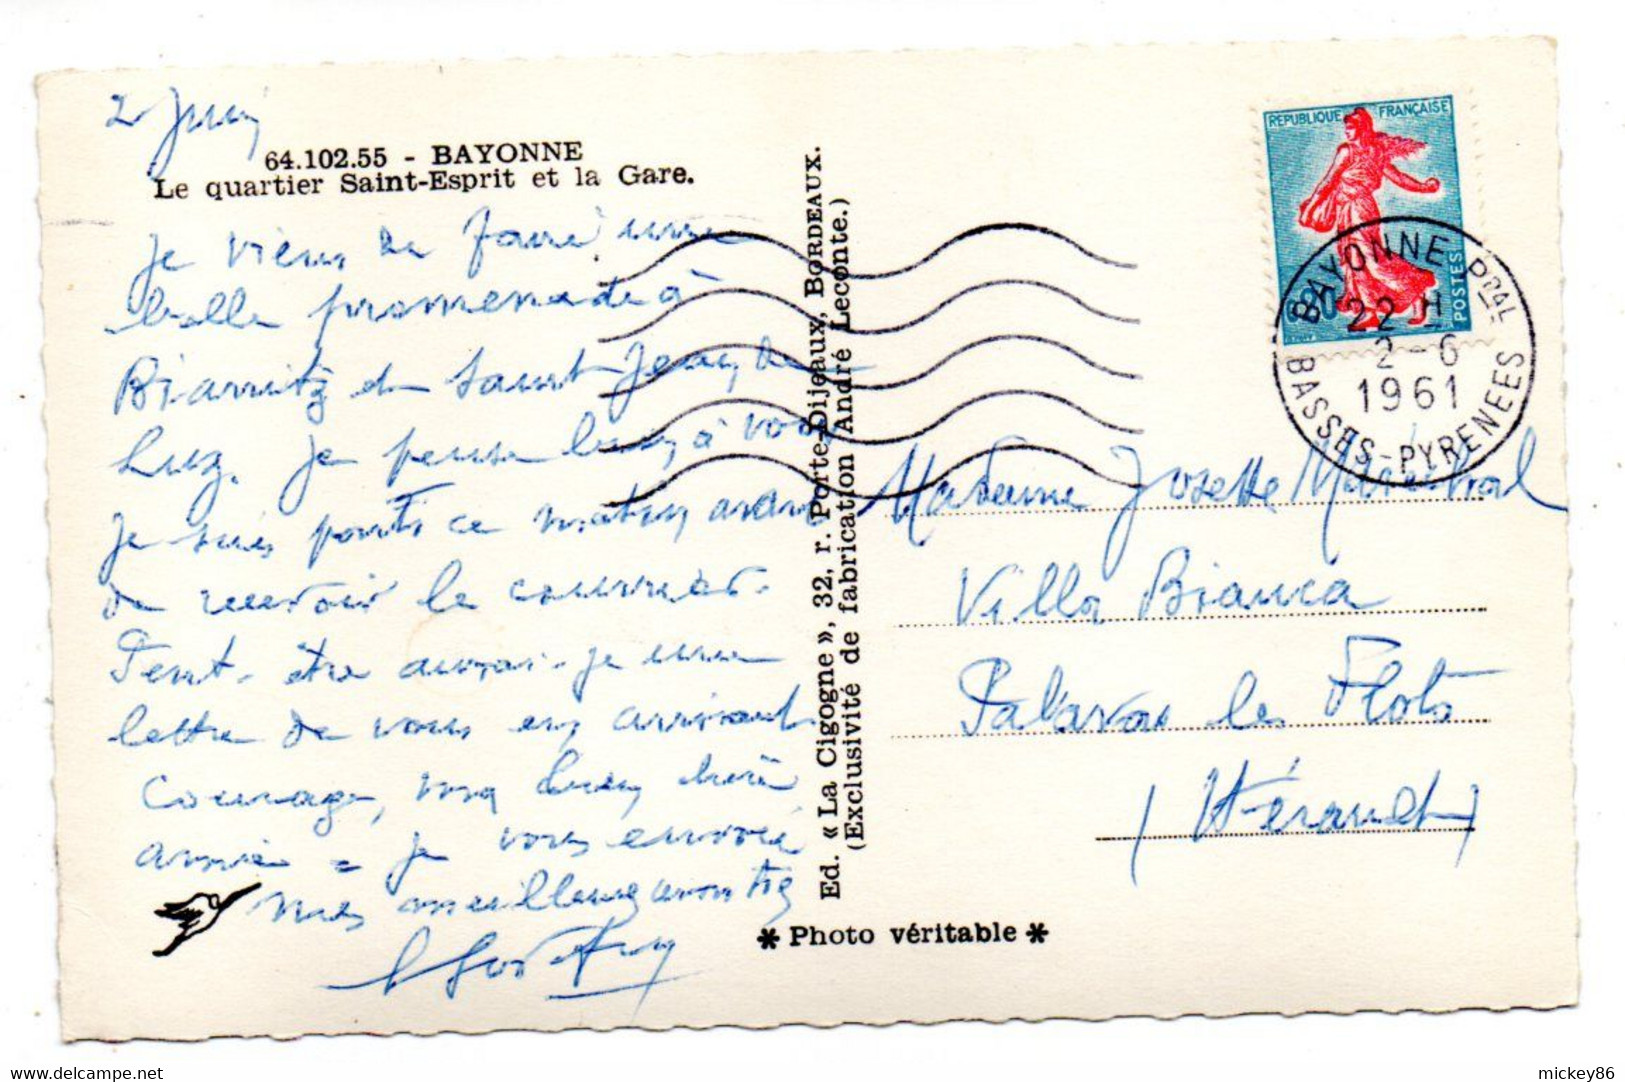 2 Juin
64.102.55 - BAYONNE
Le quartier Saint-Esprit et la Gare.
Je viens de faire une
belle promenade à
Biarritz et Saint Jean de
Luz. Je pense bien à vous
Je suis partie ce matin avant
de recevoir le courrier.
Peut-être aurai-je une
lettre de vous en arrivant
Courage, ma bien chère
amie = Je vous envoie
mes meilleures amitiés
Ed. « La Cigogne », 32, r. Porte-Dijeaux, BORDEAUX.
(Exclusivité de fabrication André Leconte.)
* Photo véritable *
REPUBLIQUE FRANÇAISE
0,20
POSTES
BAYONNE Pᵖᵃᴸ
22 H
2 - 6
1961
BASSES-PYRENEES
Madame Josette Maréchal
Villa Bianca
Palavas les Flots
(Hérault)
mickey86